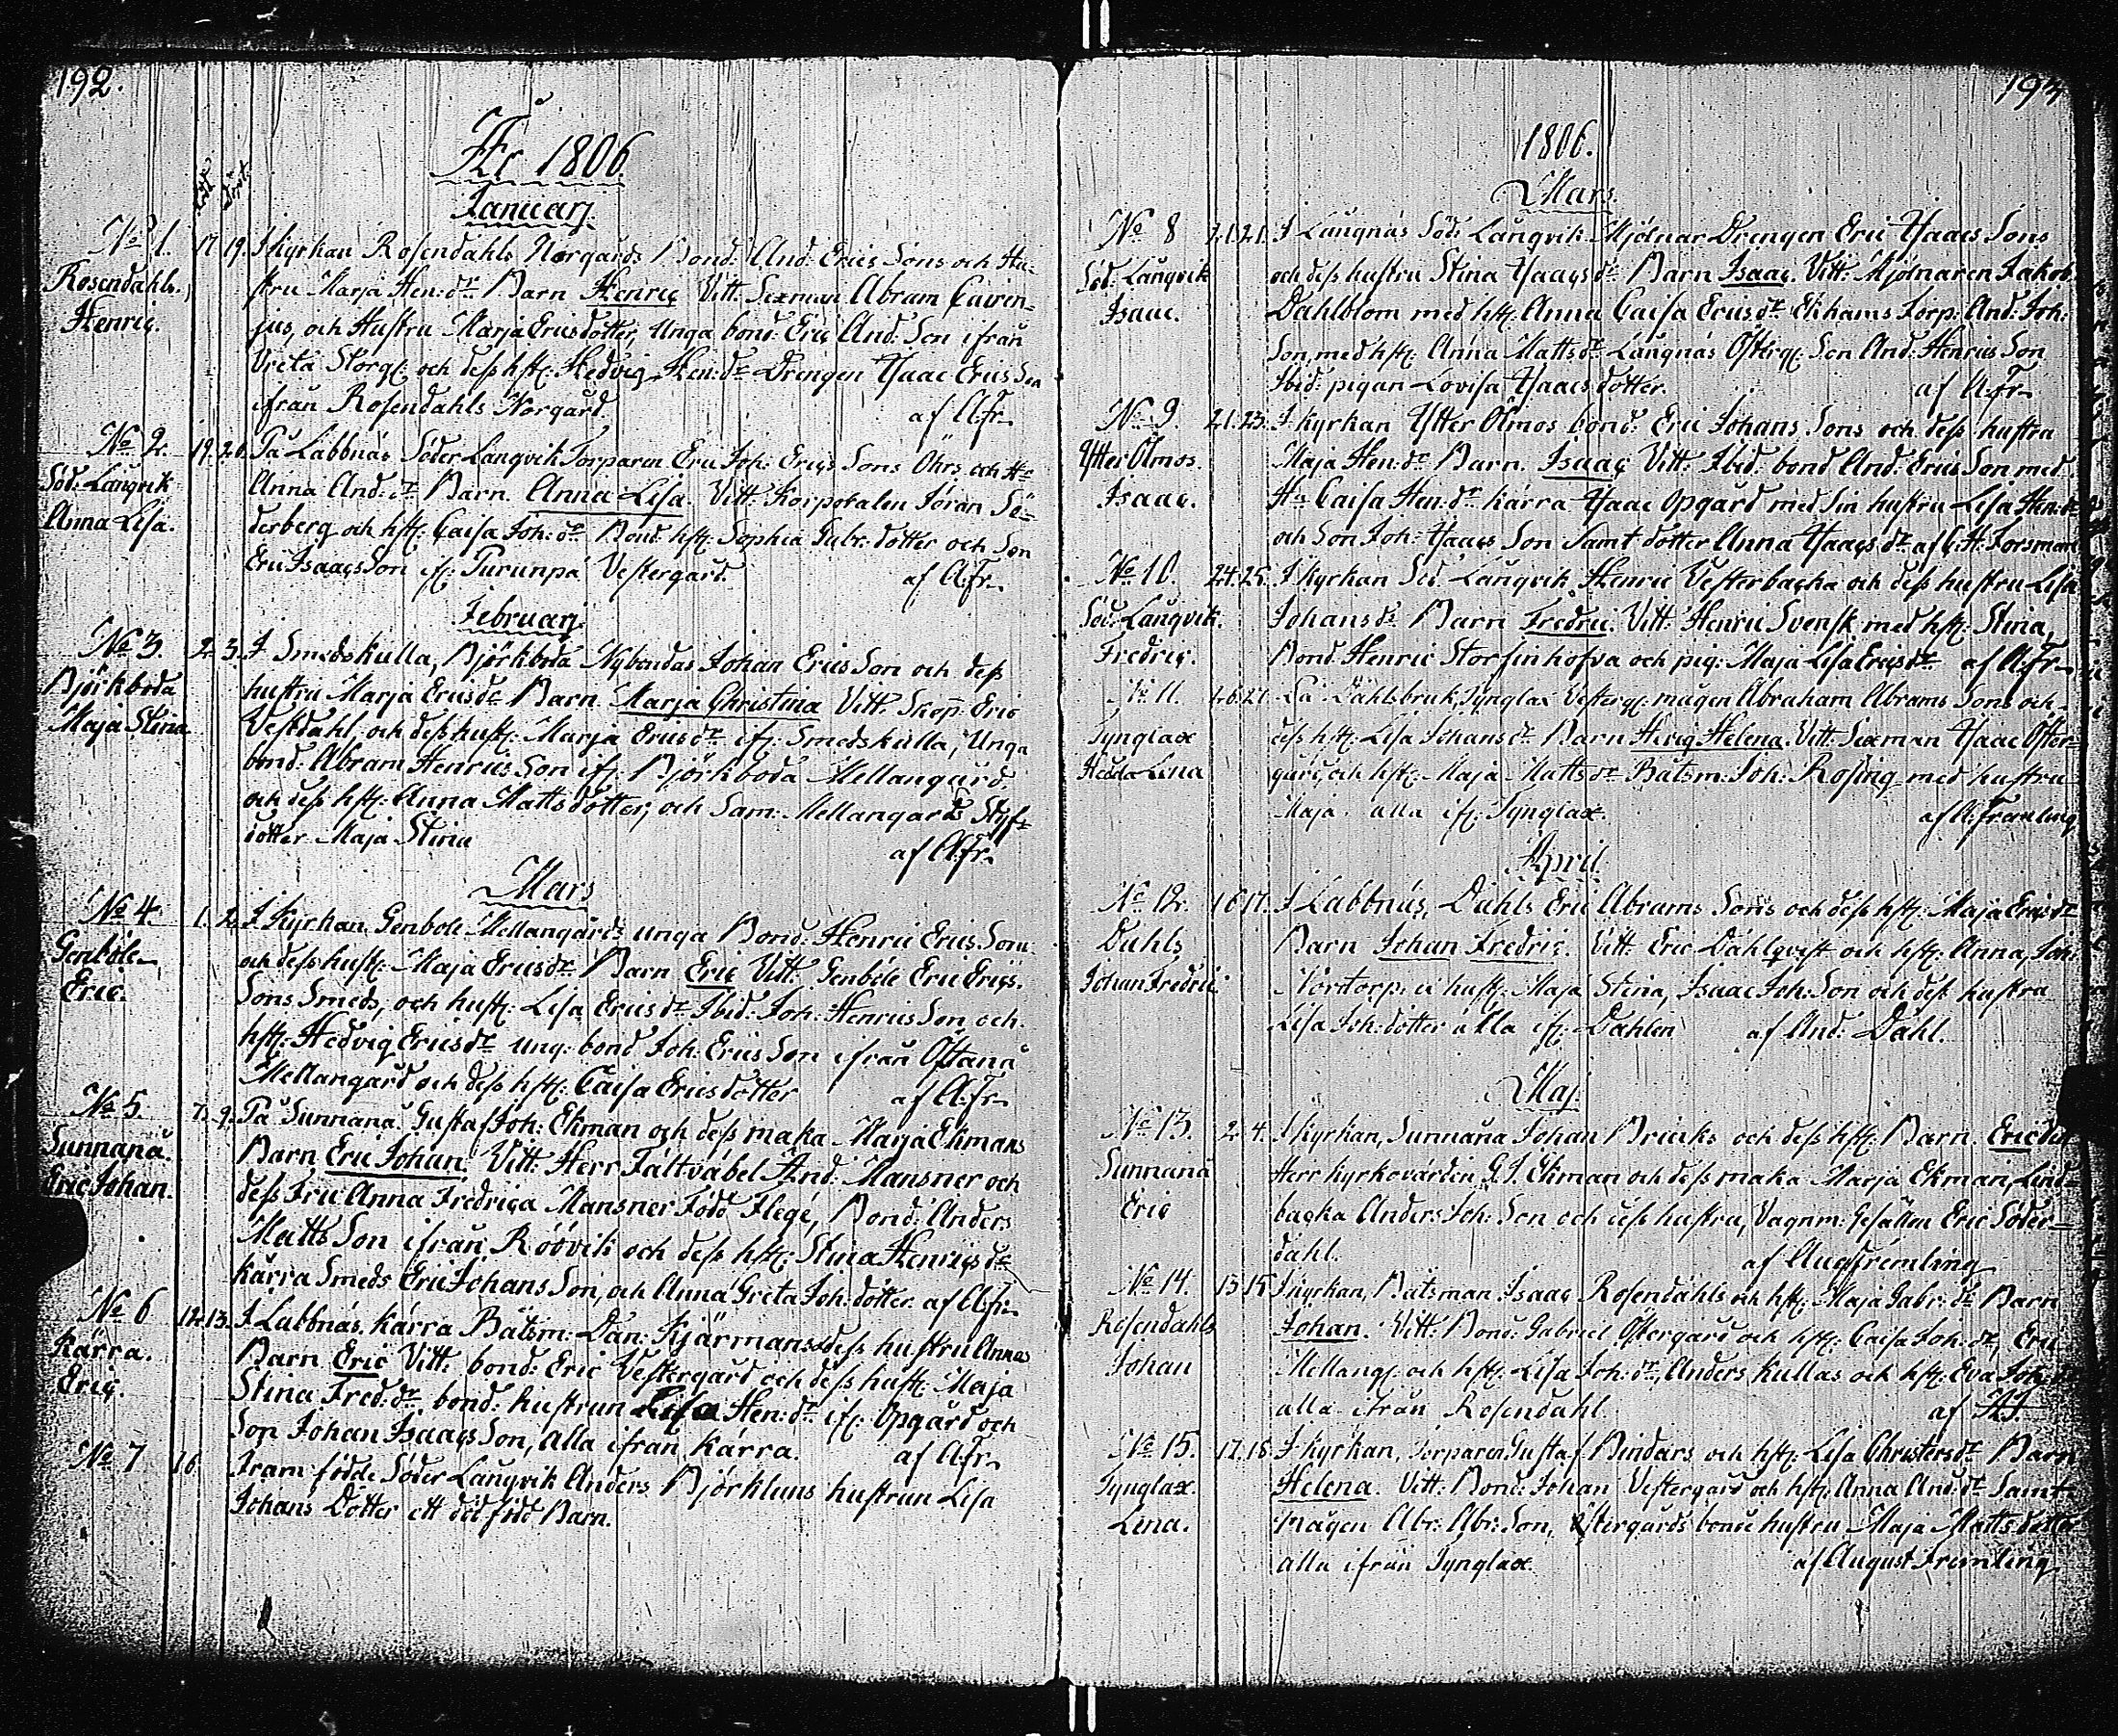 192.
År 1806.
Januarj.
född döpt
No 1. 17. 19. I Kyrkan Rosendahls Norgårds Bond: And: Erics Sons och Hu-
Rosendahls. stru Marja Hen: dr Barn Henric Vitt. Sexman Abram Cairen-
Henric. jus, och Hustru Marja Ericsdotter, Unga bond: Eric And: Son ifrån
Vreta Storg: och dess hst: Hedvig Hen: dr Drengen Isaac Erics Son
ifrån Rosendahls Norgård. af A:Fr.
No 2. 19. 20. På Labbnäs Söder Långvik Torparen Eric Joh: Erics Sons Öhrs och Hu
Söd: Långvik Anna And: dr Barn. Anna Lisa. Vitt. Korporalen Jöran Sö-
Anna Lisa. derberg och hst: Caisa Joh: dr Bond. hst: Sophia Gabr: dotter och Son
Eric Isaacs Son if: Purunpä Vestergård. af A:Fr.
Februarj.
No 3. 2. 3. I Smedskulla, Björkboda Nybondas Johan Erics Son och dess
Björkboda hustru Marja Ericsdr Barn Marja Christina Vitt. Skepp: Eric
Maja Stina Vestdahl, och dess hust: Marja Ericsdr if: Smedskulla, Unga
bond: Abram Henrics Son if: Björkboda Mellangård,
och dess hst: Anna Mattsdotter, och Sam: Mellangårds Styf-
dotter Maja Stina af A:Fr.
Mars
No 4. 1. 2. I Kyrkan Genböle Mellangårds unga Bond: Henric Erics Sons
Genböle och dess hust: Maja Ericsdr Barn Eric Vitt. Genböle Eric Erics
Eric. Sons Smeds, och hust: Lisa Ericsdr Ibid: Joh: Henrics Son och
hst: Hedvig Ericsdr ung: bond Joh: Erics Son ifrån Östanå
Mellangård och dess hst: Caisa Ericsdotter af A:Fr.
No 5. 7. 9. På Sunnanå Gustaf Joh: Ekman och dess maka Marja Ekmans
Sunnanå. Barn Eric Johan. Vitt: Herr Fältväbel And: Mansner och
Eric Johan. dess Fru Anna Fredrica Mansner Född Flege, Bond: Anders
Matts Son ifrån Röövik och dess hst: Stina Henricsdr
Kärra Smeds Eric Johans Son, och Anna Greta Joh: dotter. af A:Fr.
No 6 12. 13. I Labbnäs, Kärra Båtsm: Dan: Kjärmans dess hustru Anna
Kärra. Barn Eric Vitt: bond: Eric Vestergård och dess hust: Maja
Eric. Stina Fred: dr, bond: hustrun Lisa Hen: dr if: Opgård och
Son Johan Isaacs Son, alla ifrån Kärra. af A:Fr.
No 7 16. Fram födde Söder Långvik Anders Björkluns hustrun Lisa
Johans Dotter ett död födt Barn.
193
1806.
Mars.
No 8 21. 21. I Långnäs Söd: Långvik Mjölnar Drengen Eric Isaacs Sons
Söd: Långvik och dess hustru Stina Isaacsdr Barn Isaac. Vitt. Mjölnaren Jakob
Isaac. Dahlblom med hst: Anna Caisa Ericsdr Ekhams Torp: And: Joh:
Son, med hst: Anna Mattsdr Långnäs Österg: Son And: Henrics Son
Ibid: pigan Lovisa Isaacsdotter. af A:Fr.
No 9. 21. 23. I Kyrkan Ytter Ölmos bond: Eric Johans Sons och dess hustru
Ytter Ölmos. Maja Hen: dr Barn. Isaac Vitt. Ibid: bond And: Erics Son med
Isaac. Hu Caisa Hen: dr Kärra Isaac Opgård med sin hustru Lisa Hen: dr
och Son Joh: Isaacs Son Samt dotter Anna Isaacsdr. af C: H: Forsman
No 10. 24. 25. I Kyrkan Söd. Långvik Henric Vesterbacka och dess hustru Lisa
Söd: Långvik. Johansdr Barn Fredric. Vitt: Henric Svensk med hst: Stina,
Fredric. Bond. Henric Storfinhofva och pig: Maja Lisa Ericsdr af A:Fr.
No 11. 26. 27. På Dahlsbruk, Tynglax Vesterg: mågen Abraham Abrams Sons och
Tynglax dess hst: Lisa Johansdr Barn Hevig Helena. Vitt. Sexman Isaac Öster-
Hedda Lena gård, och hst: Maja Mattsdr Båtsm: Joh: Rosing med hustru
Maja alla if: Tynglax. af A: Fremling
April.
No 12. 16 17. I Labbnäs, Dahls Eric Abrams Sons och dess hst: Maja Ericsdr
Dahls Barn Johan Fredric. Vitt. Eric Dahlqvist och hst: Anna, Joh:
Johan Fredric Nortorp: hust: Maja Stina, Isaac Joh: Son och dess hustru
Lisa Joh: dotter alla if: Dahlen af And: Dahl.
Maj.
No 13. 2. 4. I Kyrkan, Sunnanå Johan Brinks och dess hst: Barn. Eric
Sunnanå Herr Kyrkovärden G. J. Ekman och dess maka Marja Ekman, Lind-
Eric backa Anders Joh: Son och dess hustru, Vagnm: Gesällen Eric Söder-
dahl. af Aug Fremling
No 14. 13 15. I Kyrkan, Båtsman Isaac Rosendahls och hst: Maja Gabr: dr Barn
Rosendahls Johan. Vitt: Bond: Gabriel Östergård och hst: Caisa Joh: dr, Eric
Johan Mellang: och hst: Lisa Joh: dr, Anders Kullas och hst: Eva Joh: dr
alla ifrån Rosendahl. af
No 15. 17. 18. I Kyrkan, Torparen Gustaf Bindars och hst: Lisa Christersdr Barn
Tynglax. Helena. Vitt. Bond: Johan Vestergård och hst: Anna And: dr Samt
Lena. mågen Abr: Abr: Son, Östergårds bonde hustru Maja Mattsdotter
alla ifrån Tynglax. af August Fremling